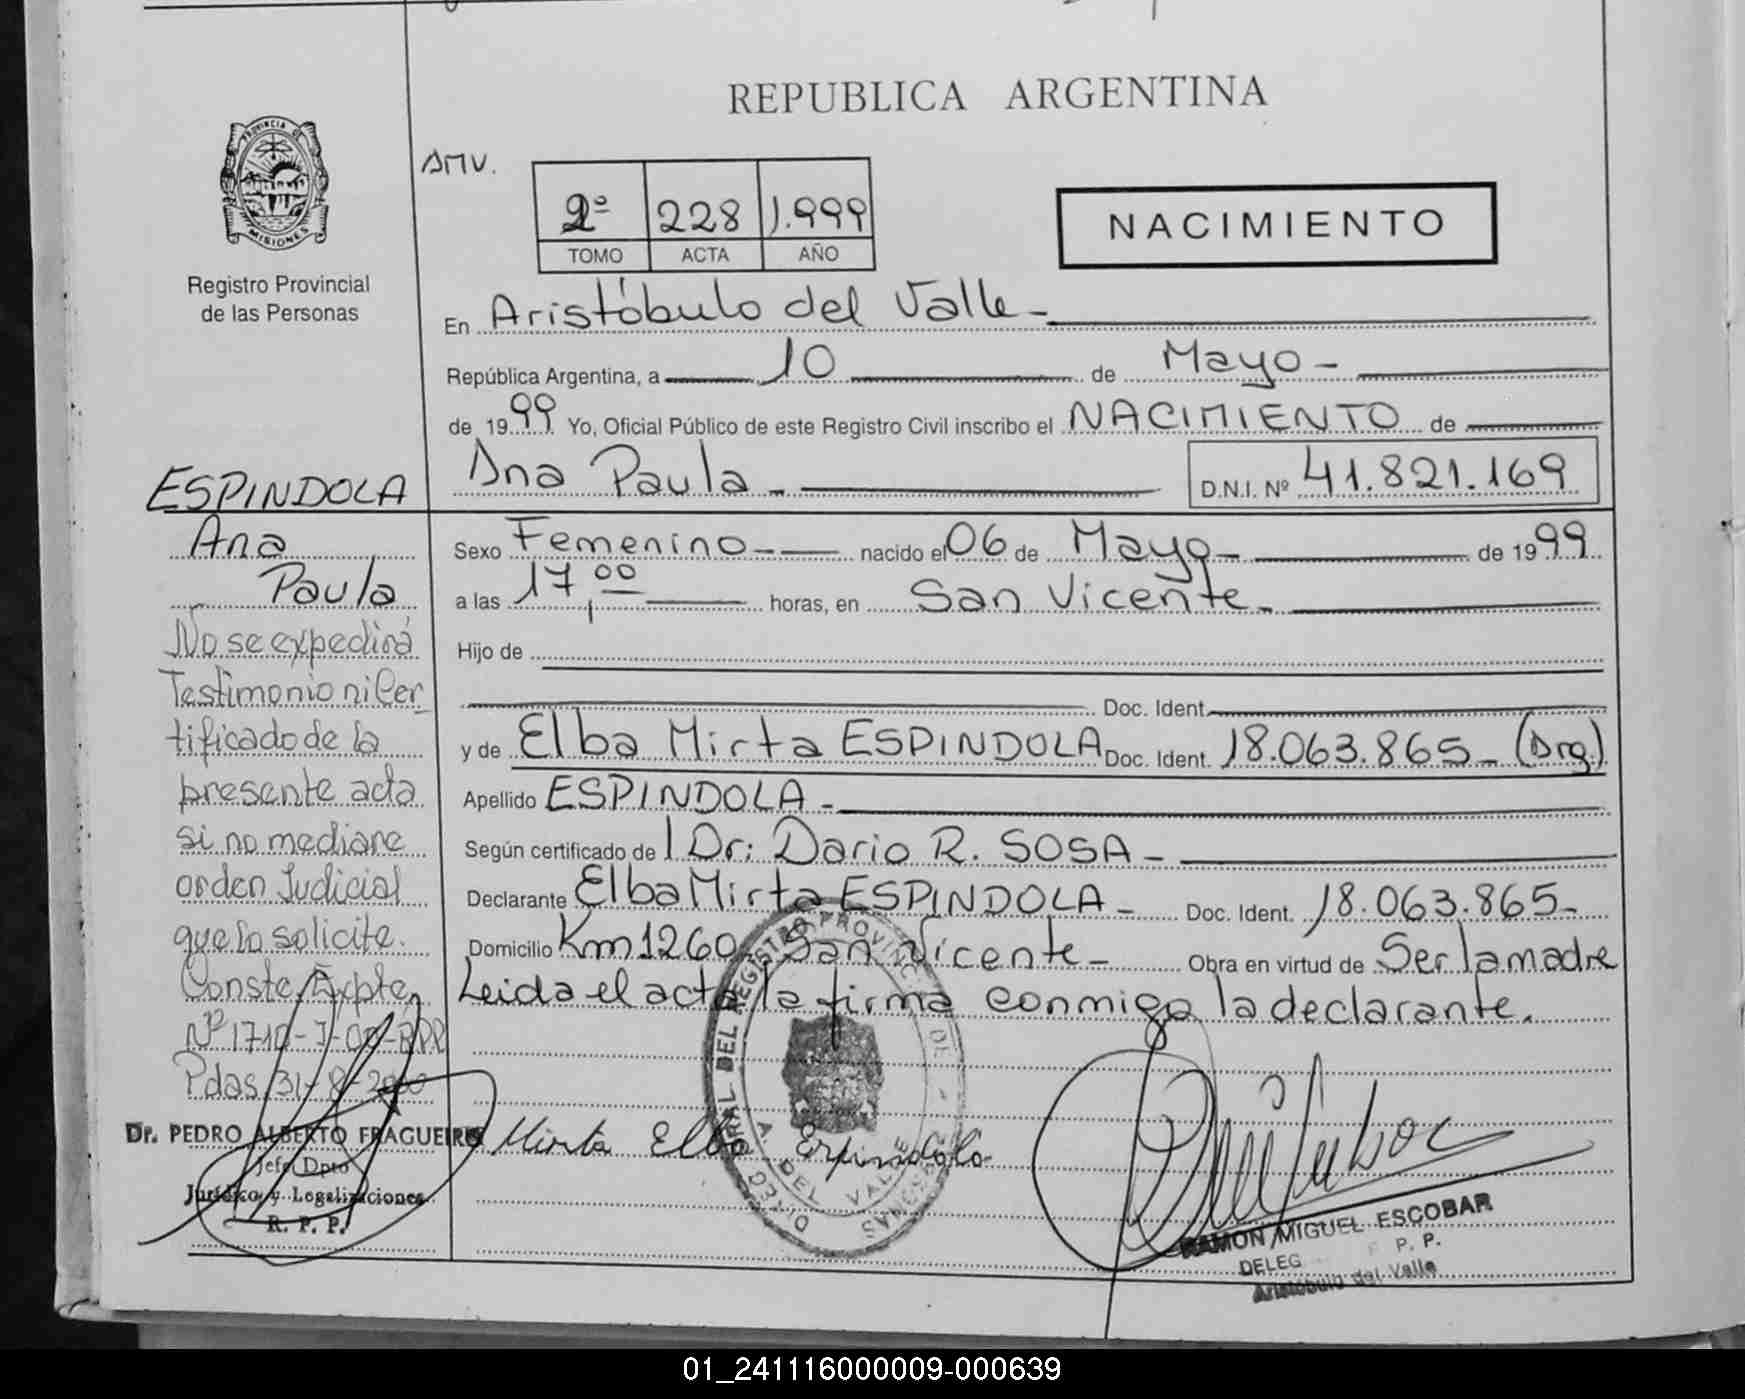 REPUBLICA ARGENTINA
PROVINCIA DE MISIONES
Registro Provincial
de las Personas
AMV.
2º 228 1.999
TOMO ACTA AÑO
NACIMIENTO
En Aristóbulo del Valle-
República Argentina, a 10 de Mayo-
de 1999 Yo, Oficial Público de este Registro Civil inscribo el NACIMIENTO de
Ana Paula - D.N.I. Nº 41.821.169
Sexo Femenino- nacido el 06 de Mayo- de 1999
a las 17,00 horas, en San Vicente-
Hijo de
Doc. Ident.
y de Elba Mirta ESPINDOLA Doc. Ident. 18.063.865- (Arg.)
Apellido ESPINDOLA-
Según certificado de l Dr: Dario R. SOSA-
Declarante Elba Mirta ESPINDOLA- Doc. Ident. 18.063.865-
Domicilio Km 1260, San Vicente- Obra en virtud de Ser la madre
Leida el acta la firma conmigo la declarante.
Mirta Elba Espindola
RAMON MIGUEL ESCOBAR
DELEG P. P.
Aristóbulo del Valle
ESPINDOLA
Ana
Paula
No se expedirá
Testimonio ni Cer
tificado de la
presente acta
si no mediare
orden Judicial
que lo solicite.
Conste Expte,
Nº 1710-J-00-RPP
Pdas 31-8-2000
Dr. PEDRO ALBERTO FRAGUEIRO
Jefe Dpto
Jurídico y Legalizaciones
R. P. P.
01_241116000009-000639